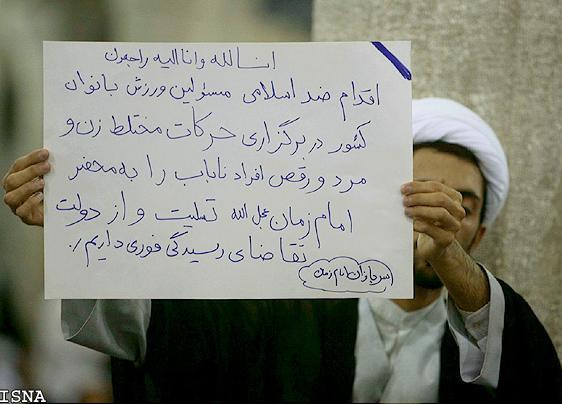 انا لله وانا الیه راجعون
اقدام ضد اسلامی مسئولین ورزش بانوان
کشور در برگزاری حرکات مختلط زن و
مرد و رقص افراد ناباب را به محضر
امام زمان عجل الله تسلیت و از دولت
تقاضای رسیدگی فوری داریم.
سربازان امام زمان
ISNA